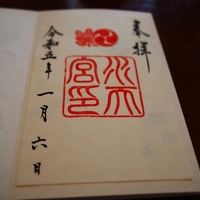 奉拝
水天
宮印
令和五年一月六日